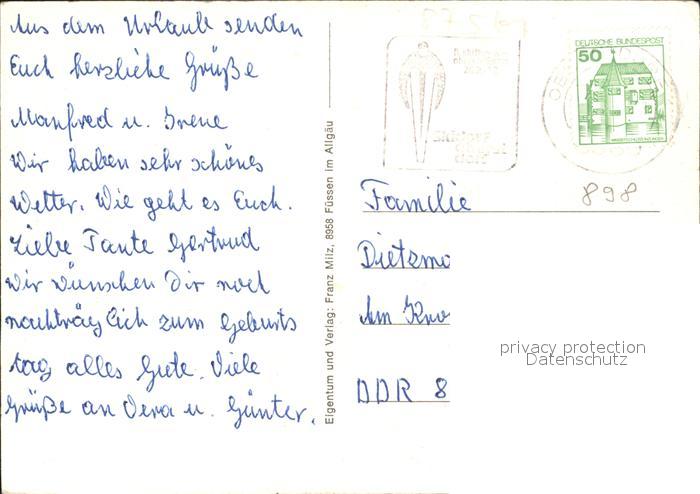 Aus dem Urlaub senden
Euch herzliche Grüße
Manfred u. Irene
Wir haben sehr schönes
Wetter. Wie geht es Euch.
Liebe Tante Gertrud
Wir wünschen Dir noch
nachträglich zum Geburts
tag alles Gute. Viele
Grüße an Vera u. Günter.
Eigentum und Verlag: Franz Milz, 8958 Füssen im Allgäu
DEUTSCHE BUNDESPOST
50
898
Familie
Dietzmo
Am
DDR 8
privacy protection
Datenschutz